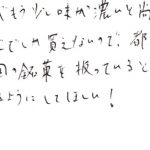 でもう少し味が濃いと尚
こでしか買えないので、都
国の銘菓を扱っていると
るようにしてほしい!